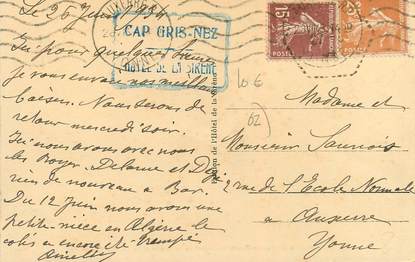 Le 26 Juin 1934
CAP GRIS-NEZ
HÔTEL DE LA SIRÈNE
Ici pour quelques
je vous envoie nos meilleurs
baisers. Nous serons de
retour mercredi soir.
Ici nous avons avec nous
les Royer. Delorme et
rien de nouveau à Bar.
Du 12 Juin nous avons une
petite-nièce en Algérie le
colis a encore été trompé
15
POSTES
POSTES
10 6
62
Madame et
Monsieur
2 rue de l'Ecole Normale
à Auxerre
Yonne
de l'Hôtel de la Sirène